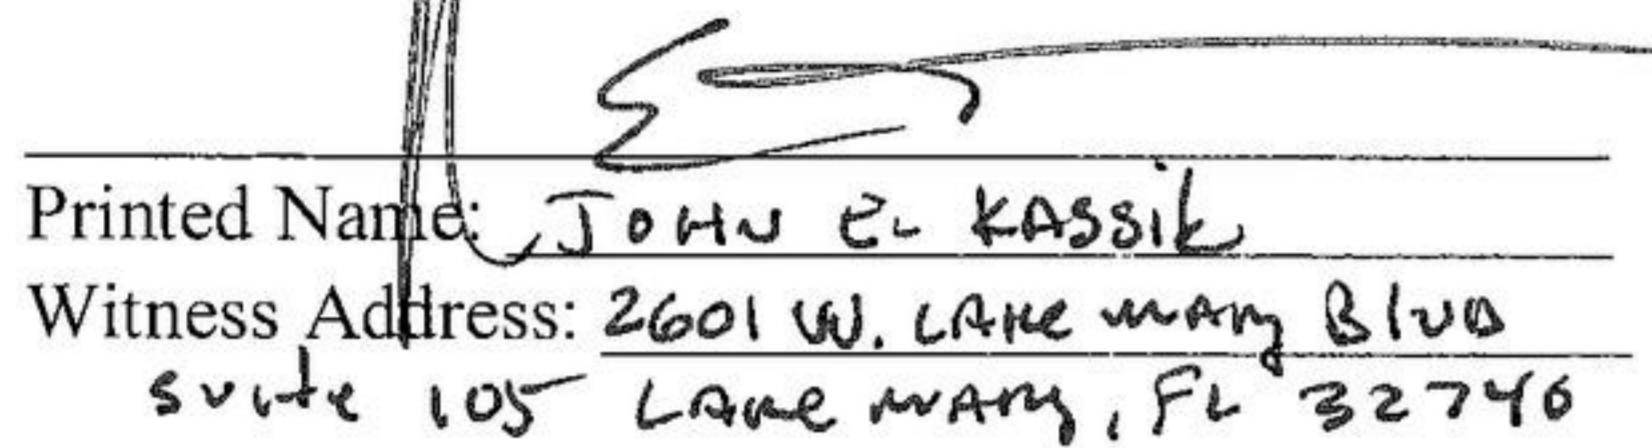 Printed Name: JOHN EL KASSIK
Witness Address: 2601 W. LAKE MARY BLVD
Suite 105 LAKE MARY, FL 32746